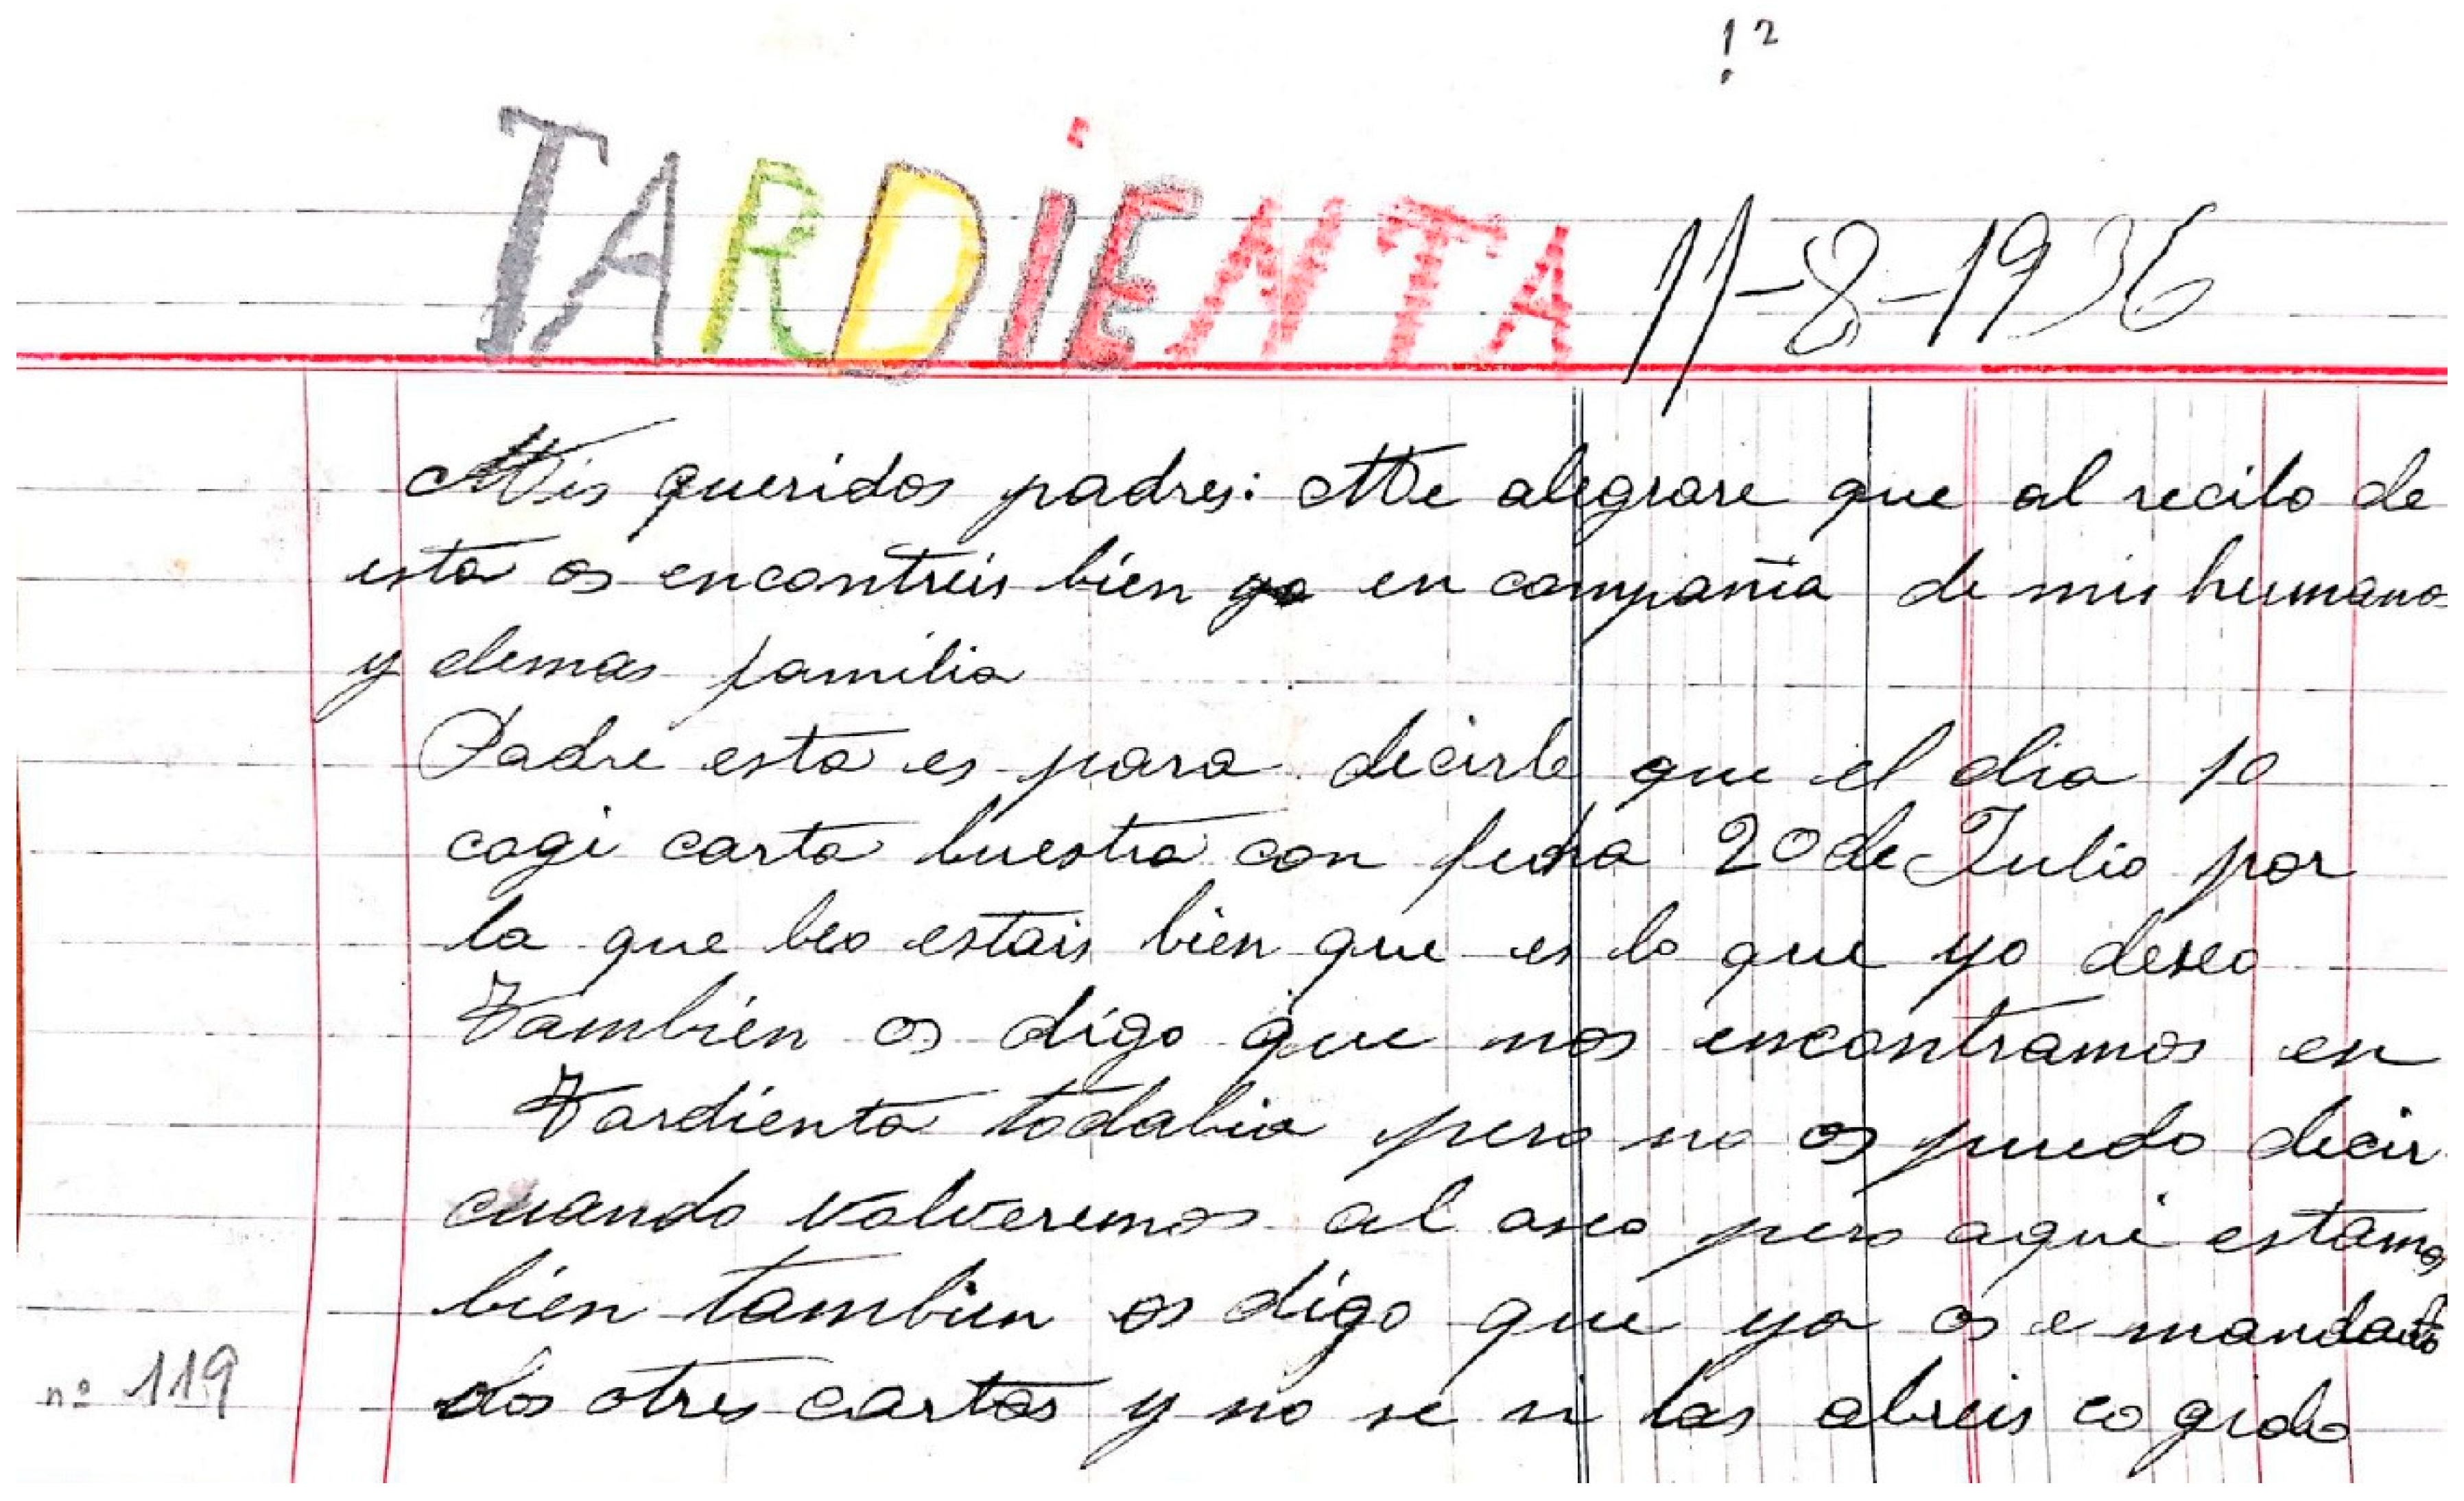 ! 2
TARDiENTA 11-8-1936
Mis queridos padres: Me alegrare que al recibo de
esta os encontreis bien yo en compañia de mis hermanos
y demas familia
Padre esta es para decirle que el dia 10
cogi carta buestra con fecha 20 de Julio por
la que beo estais bien que es lo que yo deseo
Tambien os digo que nos encontramos en
Tardienta todabia pero no os puedo decir
cuando volveremos al aseo pero aqui estamos
bien tambien os digo que ya os e mandado
dos otres cartas y no se si las abreis cogido
nº 119